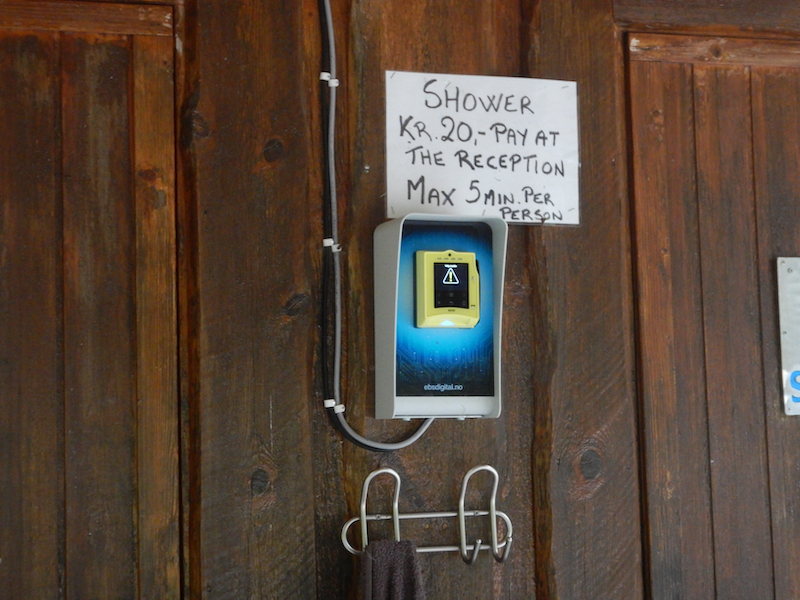 SHOWER
KR.20,- PAY AT
THE RECEPTION
MAX 5 MIN. PER
PERSON
ebsdigital.no